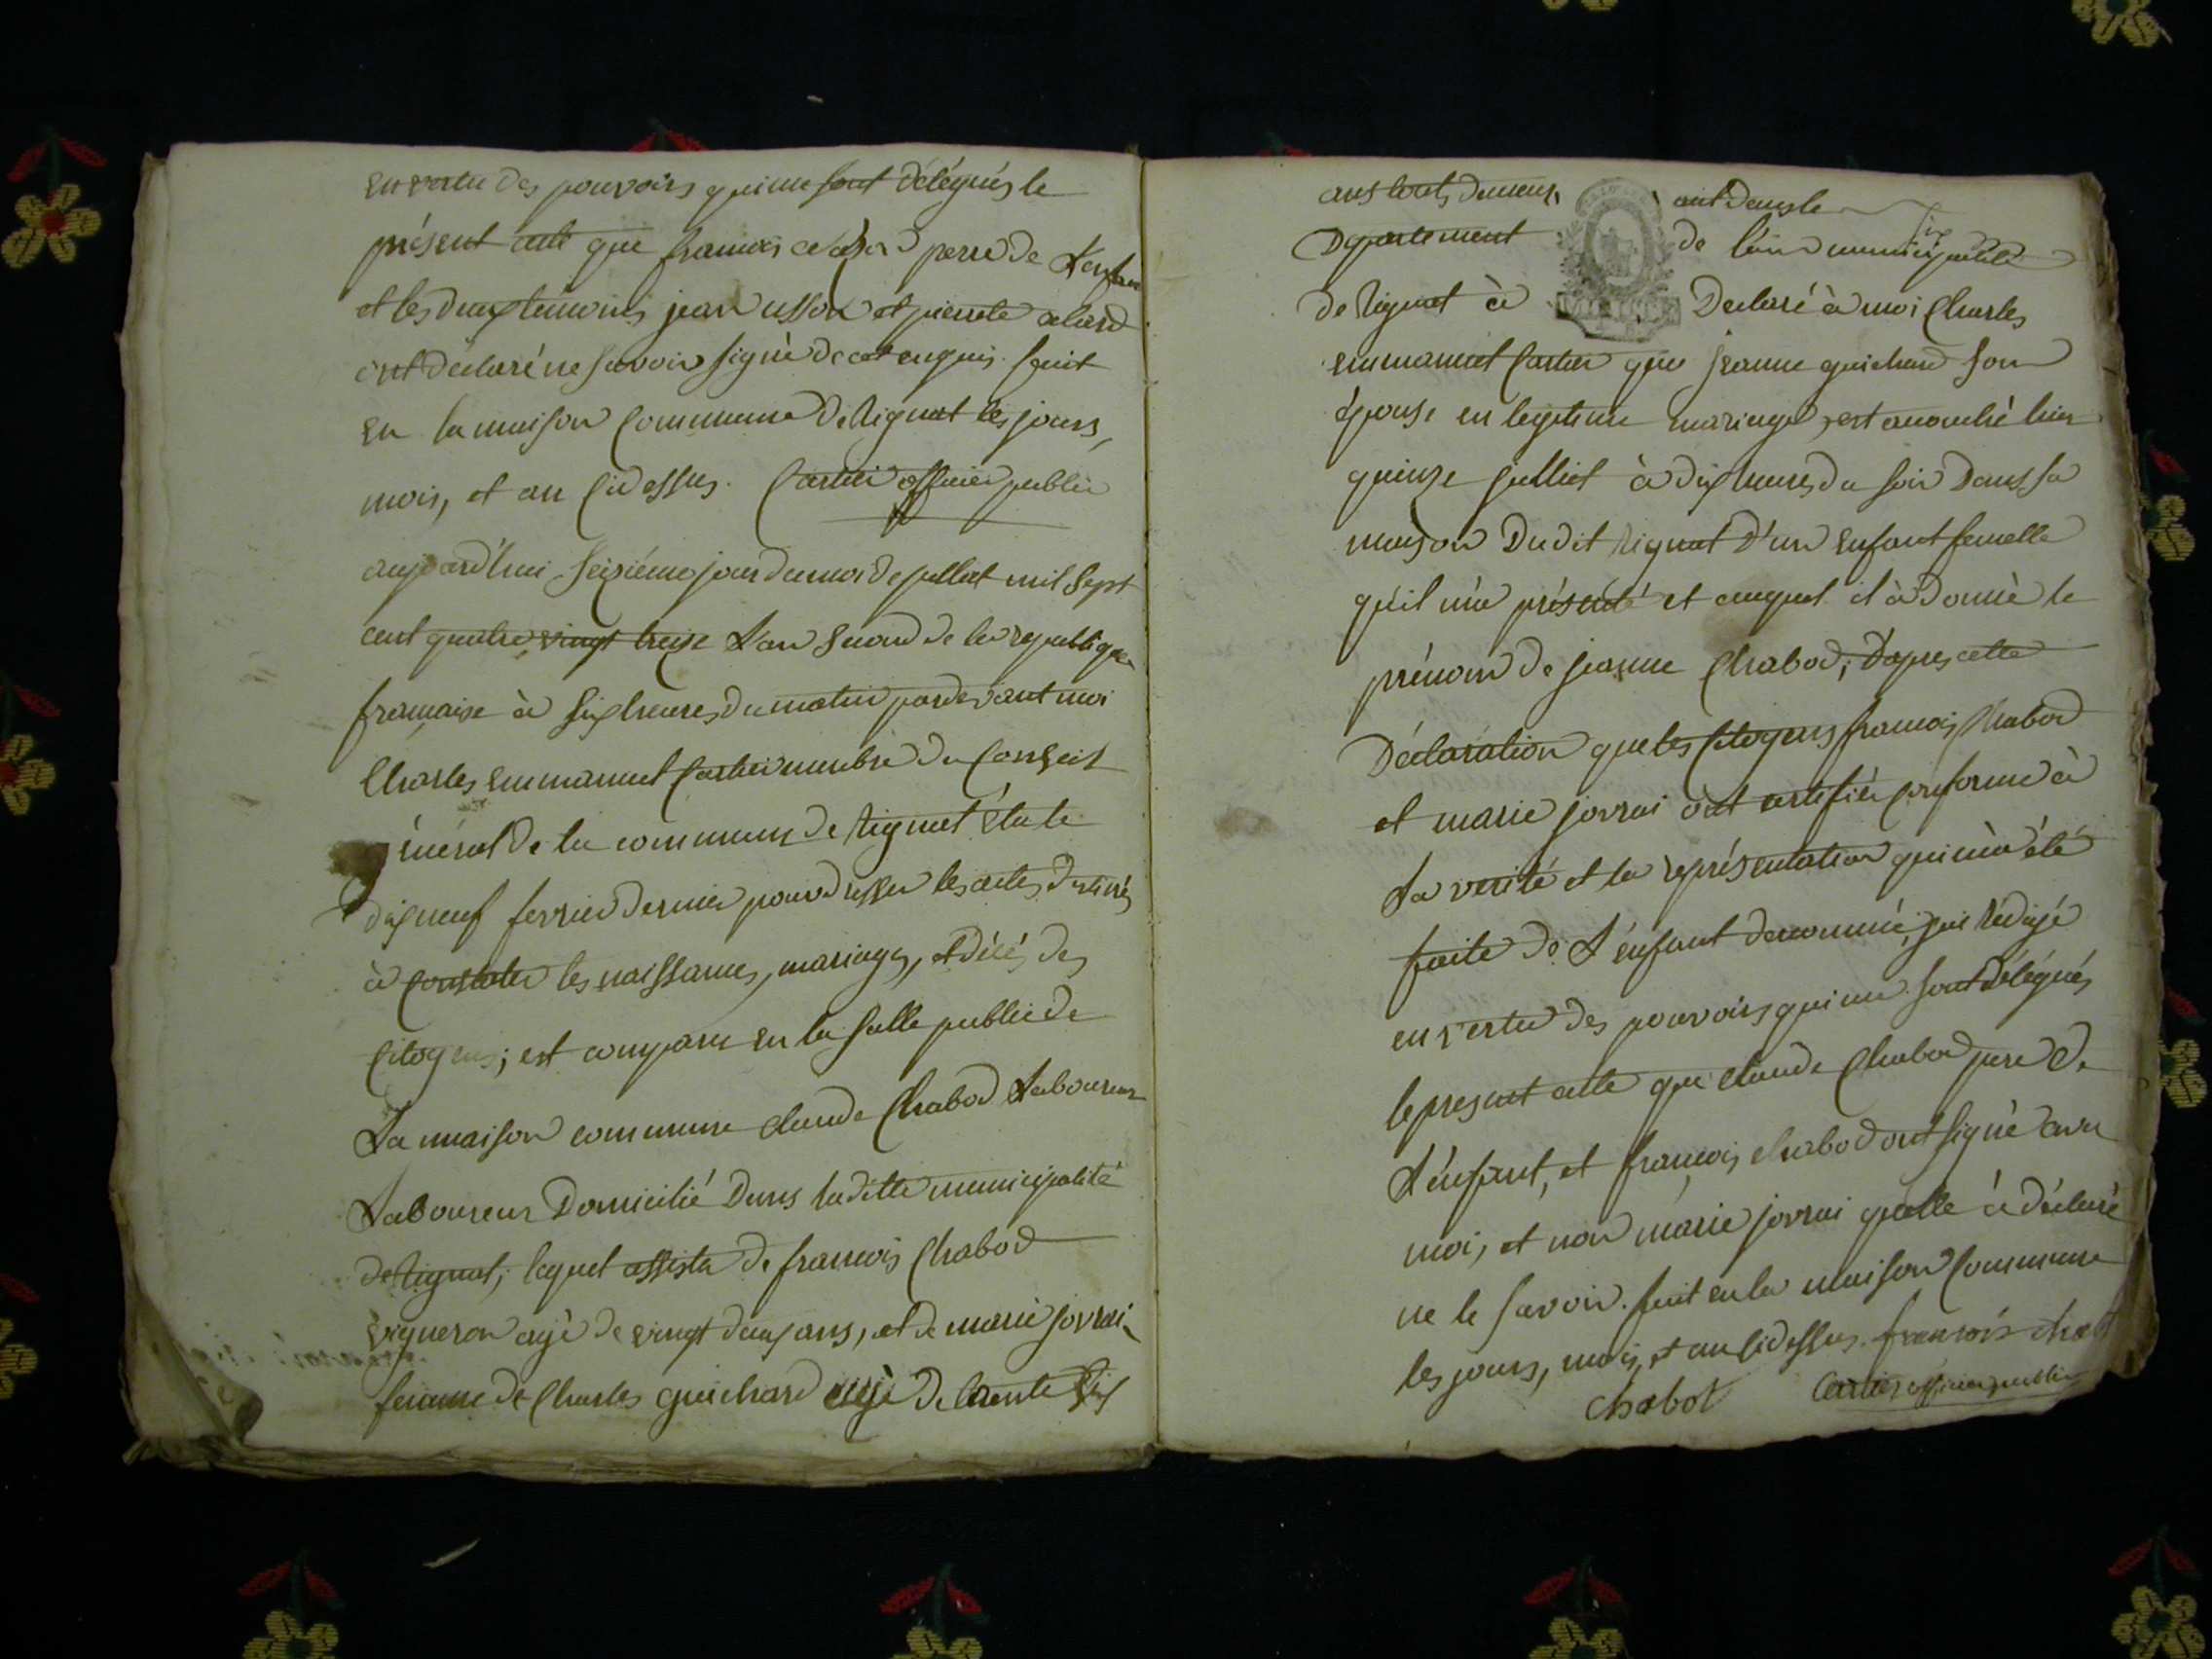 en vertu des pouvoirs qui me sont délégués le
présent acte que francois perre de L'enfan
et les deux témoins jean usson et pierrete
ont déclaré ne savoir signé de cet enquis. fait
en la maison Commune de Rignat les jours,
mois, et an Cidessus. Cartier officier public
aujourd'hui seizième jour du mois de julliet mil sept
cent quatre vingt treize L'an second de la republique
française à six heures du matin pardevant moi
Charles emmanuel Cartier membre du Conseil
géneral de la commune de Rignat élu le
dixneuf fevrier dernier pour dresser les actes destinés
à Constater les naissances, mariages, et décés des
Citoyens; est comparu en la salle public de
La maison commune claude Chabod Laboureur
Laboureur Domicilié Dans laditte municipalité
de Rignat, lequel assista de francois Chabod
vigneron agé de vingt deux ans, et de marie jovrai
femme de Charles guichard agé de trente six
ans touts demeur ant dans le
Departement de l'ain municipalité
de Rignat à Declaré à moi Charles
emmanuel Cartier que jeanne guichard son
épouse en legitime mariage, est accouché hier
quinze julliet à dix heures du soir Dans sa
maison Dudit Rignat D'un enfant femelle
qu'il m'a présenté et auquel il à donnè le
prénom de jeanne Chabod; D'apres cette
Déclaration que les Citoyens francois Chabod
et marie jovrai ont certifiée Conforme à
La verité et la représentation qui m'a été
faite de L'énfant denommé, jai rédigé
en vertu des pouvoirs qui me sont délégués
le present acte que claude Chabod pere de
L'énfant, et françois chabod ont signé avec
moi, et non marie jovrai quelle à déclaré
ne le savoir. fait en la maison Commune
les jours, mois, et an cidessus. francois chabot
chabot Cartier officier public